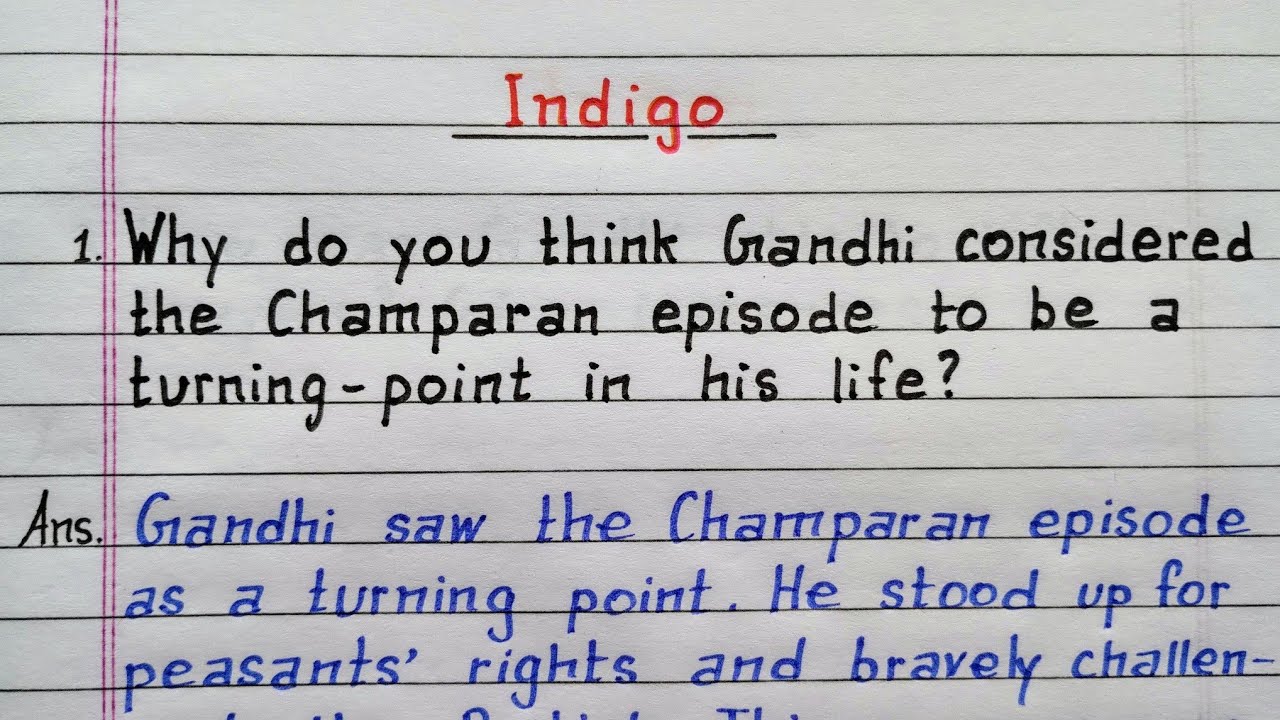 Indigo
1. Why do you think Gandhi considered
the Champaran episode to be a
turning-point in his life?
Ans. Gandhi saw the Champaran episode
as a turning point. He stood up for
peasants' rights and bravely challen-